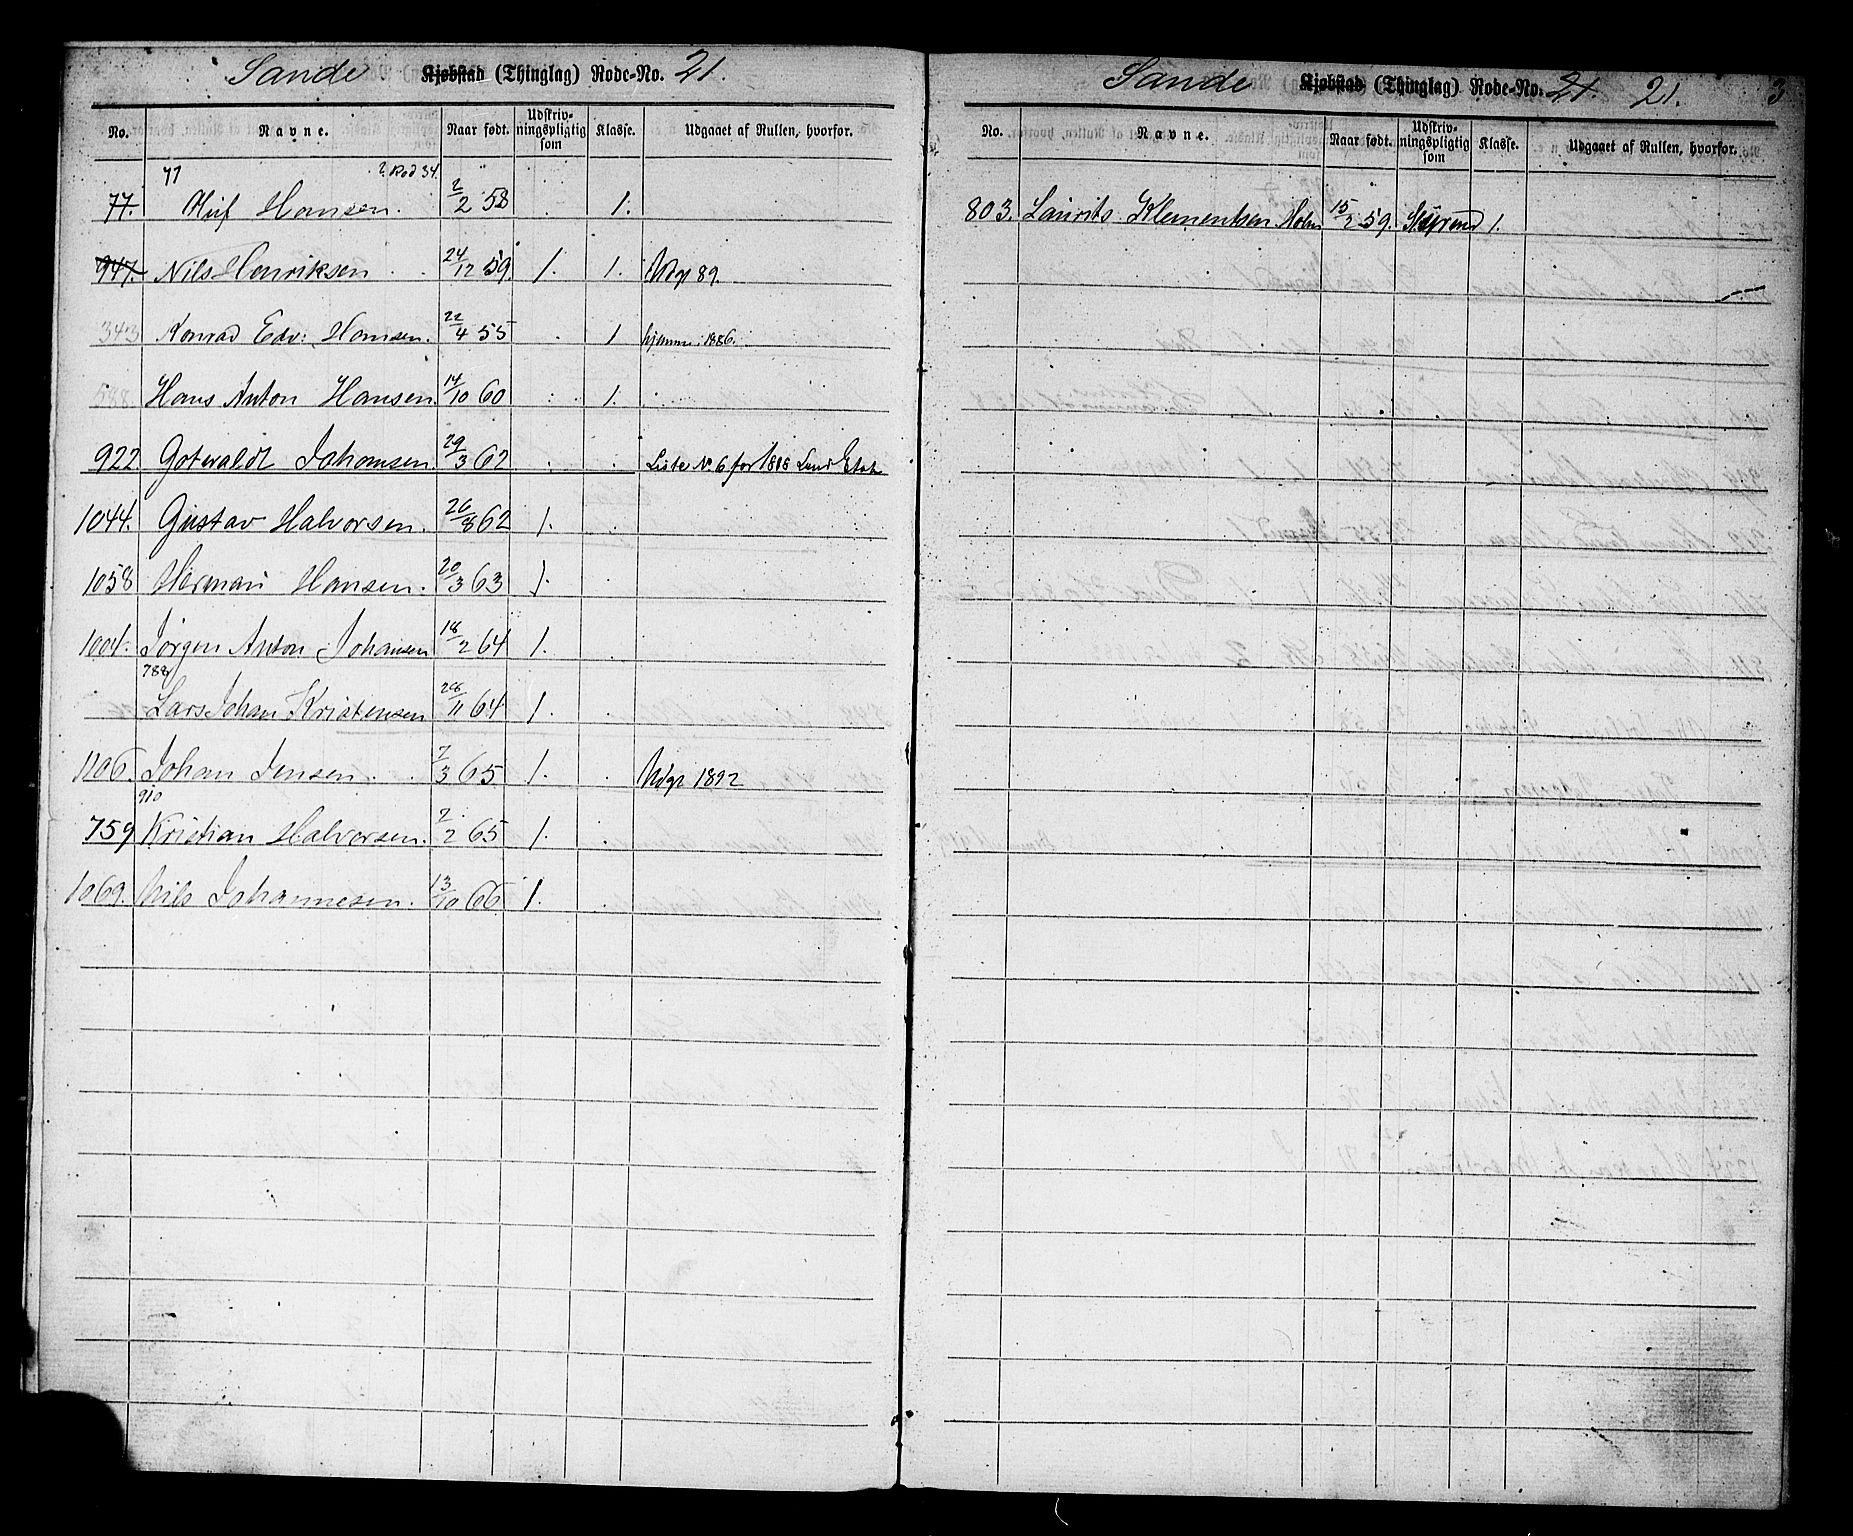 Sande Kjøbstad (Thinglag) Rode-No. 21.
No. Navne. Naar født. Udskriv-ningspligtig som Klasse. Udgaaet af Rullen, hvorfor.
77 2 Rod 34.
77. Oluf Hansen. 2/2 58 1.
947. Nils Henriksen 24/12 59. 1. 1. Udgr 89.
343 Konrad Edv: Hansen. 22/4 55 1 hjemme 1886.
588. Hans Anton Hansen. 14/10 60 1.
922 Gotwaldt Johansen. 29/3 62 Liste No 6 for 1888 Land Etat
1044. Gustav Halvorsen. 26/8 62 1.
1058 Herman Hansen. 20/3 63 1.
1004. Jørgen Anton Johansen 18/2 64 1.
788
Lars Johan Kristensen 28/11 64 1.
1106. Johan Jensen. 7/3 65 1. Udgr 1892
910
759 Kristian Halvorsen. 2/2 65 1.
1069. Nils Johannesen. 13/10 66 1.
Sande Kjøbstad (Thinglag) Rode-No. 21. 21. 3
No. Navne. Naar født. Udskriv-ningspligtig som Klasse. Udgaaet af Rullen, hvorfor.
803. Laurits Klementsen Holm 15/2 59. 1.